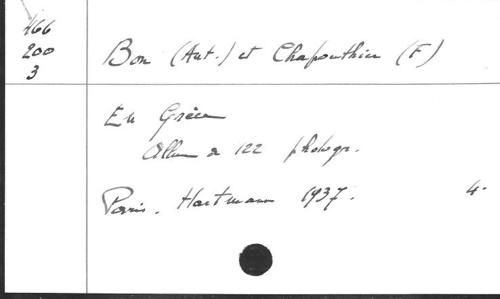 466
200
3
Bon (Ant.) et Chapouthier (F)
En Grèce
Album de 122 photogr.
Paris. Hartmann 1937.
4.